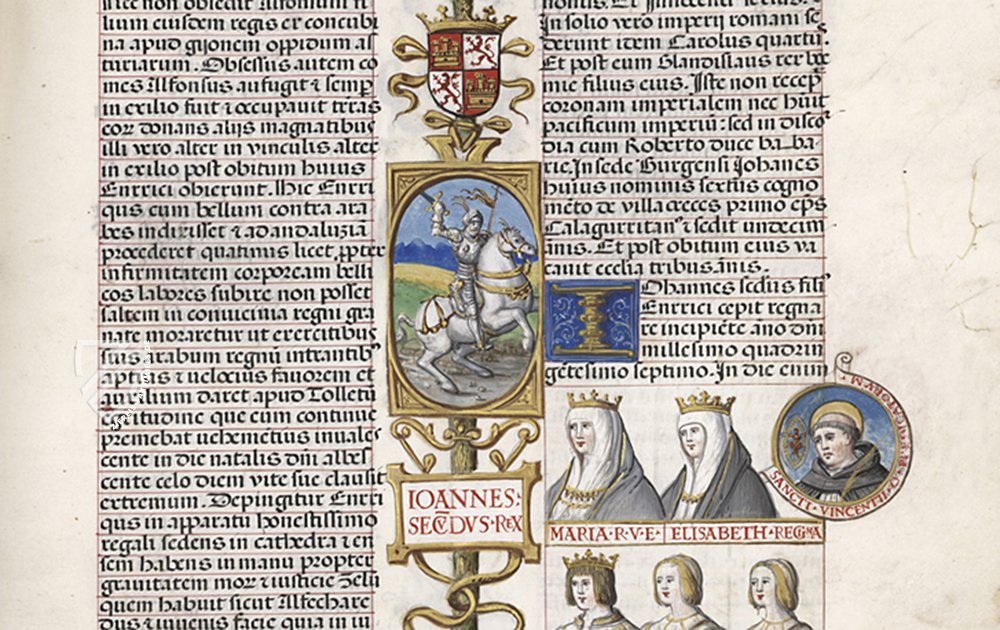 lium eiusdem regis ex concubi
na apud gijonem oppidum as
turiarum. Obsessus autem co
mes Alfonsus aufugit ⁊ semp
in exilio fuit ⁊ occupauit terras
eor donans alijs magnatibus
illi vero alter in vinculis alter
in exilio post obitum huius
Enrrici obierunt. Hic Enrri
qus cum bellum contra ara
bes indixisset ⁊ ad andaluziā
procederet quatinus licet, ꝓpter
infirmitatem corpoream belli
cos labores subire non posset
saltem in conuicinia regni gra
nate moraretur ut exercitibus
suis arabum regnū intrantib
aptius ⁊ uelocius fauorem et
auxilium daret apud Tolletū
egritudine que eum continue
premebat uehemētius inuales
cente in die natalis dn̄i albes
cente celo diem vite sue clausit
extremum. Depingitur Enrri
qus in apparatu honestissimo
regali sedens in cathedra ⁊ en
sem habens in manu propter
grauitatem mor ⁊ iusticie Zelū
quem habuit sicut Alfechare
dus ⁊ iuuenis facie quia in iu
IOANNES
SECVDVS REX
In solio vero imperii romani se
derunt item Carolus quartus.
Et post eum Glandislaus rex boe
mie filius eius. Iste non recep
coronam imperialem nec huit
pacificum imperiū: sed in disco
dia cum Roberto duce ba ba
rie. In sede Burgensi Johanes
huius nominis sextus cogno
mēto de villa creces primo ep̄s
Calagurritan ⁊ sedit undecim
annis. Et post obitum eius va
cauit ecclīa tribus annis.
IOhannes sedus fili
Enrrici cepit regna
re incipiēte āno dn̄i
millesimo quadrin
gētesimo septimo. In die enim
MARIA·R·V·E·
ELISABETH·REGINA
SANCTI·VINCENTII·O·PREDICATORVM